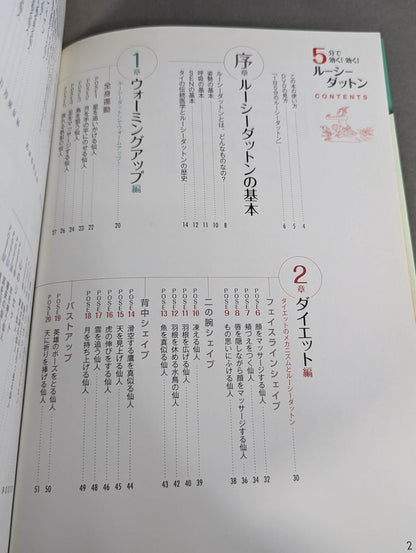 5分で
効く!効く!
ルーシー
ダットン
CONTENTS
この本の使い方 4
DVDの見方 5
「1日5分のルーシーダットン」 6
序章 ルーシーダットンの基本
ルーシーダットンとは、どんなものなの? 8
姿勢の基本 10
呼吸の基本 11
SENの基本 12
タイの伝統医学とルーシーダットンの歴史 14
1章 ウォーミングアップ編
ルーシーダットンでウォームアップ! 20
全身運動
POSE1 星を追いかける仙人 22
POSE2 月を手の平にのせる仙人 23
POSE3 月を敬う仙人 24
POSE4 マッサージする仙人 26
POSE5 仙人 27
2章 ダイエット編
ダイエットのメカニズムとルーシーダットン 30
フェイスラインシェイプ
POSE6 顔をマッサージする仙人 32
POSE7 頬づえをつく仙人 34
POSE8 唇を隠しながら顔をマッサージする仙人 36
POSE9 もの思いにふける仙人 38
二の腕シェイプ
POSE10 凍える仙人 39
POSE11 羽根を広げる仙人 40
POSE12 羽根を休める水鳥の仙人 42
POSE13 魚を真似る仙人 43
背中シェイプ
POSE14 滑空する鷹を真似る仙人 44
POSE15 天を見上げる仙人 45
POSE16 虎の伸びをする仙人 46
POSE17 雲を追う仙人 48
POSE18 月を持ち上げる仙人 49
バストアップ
POSE19 英雄のポーズをとる仙人 50
POSE20 天に祈りを捧げる仙人 51
2